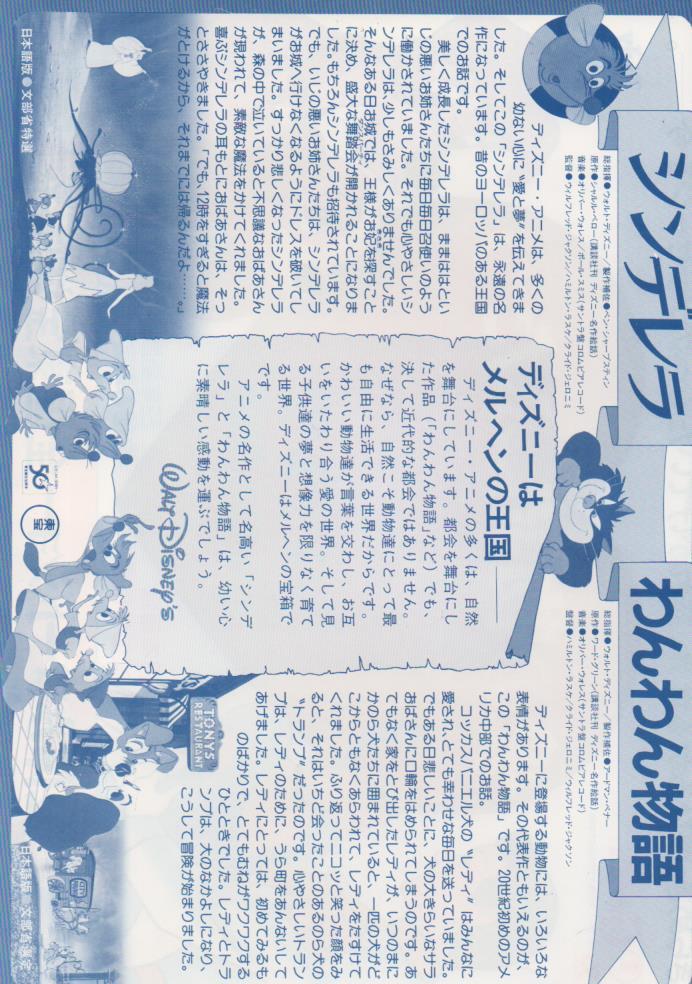 シンデレラ
総指揮●ウォルト・ディズニー／製作補佐●ベン・シャープスティン
原作●シャルル・ペロー（講談社刊 ディズニー名作絵話）
音楽●オリバー・ウォレス／ポール・スミス（サントラ盤コロムビアレコード）
監督●ウィルフレッド・ジャクソン／ハミルトン・ラスケ／クライド・ジェロニミ
ディズニー・アニメは、多くの
幼ない心に〝愛と夢〟を伝えてきま
した。そしてこの「シンデレラ」は、永遠の名
作になっています。昔のヨーロッパのある王国
でのお話です。
美しく成長したシンデレラは、ままははとい
じの悪いお姉さんたちに毎日毎日召使いのよう
に働かされていました。それでも心やさしいシ
ンデレラは、少しもさみしくありませんでした。
そんなある日お城では、王様がお妃を探すこと
に決め、盛大な舞踏会が開かれることになりま
した。もちろんシンデレラも招待されています。
でも、いじの悪いお姉さんたちは、シンデレラ
がお城へ行けなくなるようにドレスを破いてし
まいました。すっかり悲しくなったシンデレラ
が、森の中で泣いていると不思議なおばあさん
が現われて、素敵な魔法をかけてくれました。
喜ぶシンデレラの耳もとにおばあさんは、そっ
とささやきました。「でも、12時をすぎると魔法
がとけるから、それまでには帰るんだよ……。」
日本語版●文部省特選
ディズニーは
メルヘンの王国――
ディズニー・アニメの多くは、自然
を舞台にしています。都会を舞台にし
た作品（「わんわん物語」など）でも、
決して近代的な都会ではありません。
なぜなら、自然こそ動物達にとって最
も自由に生活できる世界だからです。
かわいい動物達が言葉を交わし、お互
いをいたわり合う愛の世界。そして見
る子供達の夢と想像力を限りなく育て
る世界。ディズニーはメルヘンの宝箱で
です。
アニメの名作として名高い「シンデ
レラ」と「わんわん物語」は、幼い心
に素晴しい感動を運ぶでしょう。
WALT DISNEY'S
50
東宝
わんわん物語
総指揮●ウォルト・ディズニー／製作補佐●アードマン・ペナー
原作●ワード・グリーン（講談社刊 ディズニー名作絵話）
音楽●オリバー・ウォレス（サントラ盤コロムビアレコード）
監督●ハミルトン・ラスケ／クライド・ジェロニミ／ウィルフレッド・ジャクソン
ディズニーに登場する動物には、いろいろな
表情があります。その代表作ともいえるのが、
この「わんわん物語」です。20世紀初めのアメ
リカ中部でのお話。
コッカスパニエル犬の〝レディ〟はみんなに
愛され、とても幸わせな毎日を送っていました。
でもある日悲しいことに、犬の大きらいなサラ
おばさんに口輪をはめられてしまうのです。あ
てもなく家をとび出したレディが、いつのまに
かのら犬たちに囲まれていると、一匹の犬がど
こからともなくあらわれて、レディをたすけて
くれました。ふり返ってニコッと笑った顔をみ
ると、それはいちど会ったことのあるのら犬の
〝トランプ〟だったのです。心やさしいトラン
プは、レディのために、うら町をあんないして
あげました。レディにとっては、初めてみるも
のばかりで、とてもむねがワクワクする
ひとときでした。レディとトラ
ンプは、大のなかよしになり、
こうして冒険が始まりました。
TONYS
RESTAURANT
日本語版●文部省選定